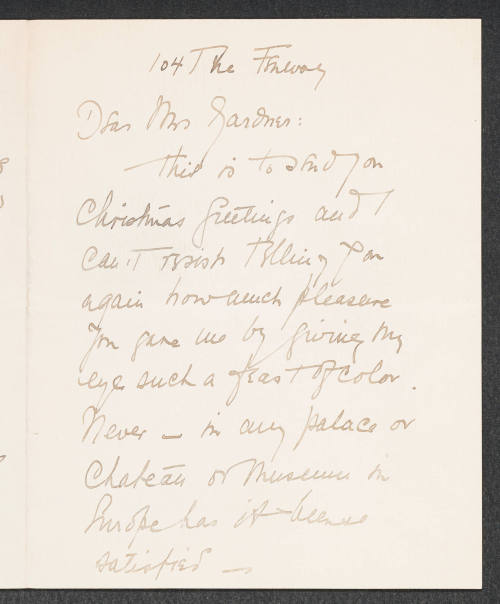 104 The Fenway
Dear Mrs Gardner:
This is to send you
Christmas Greetings and I
can't resist telling you
again how much pleasure
you gave me by giving my
eye such a feast of color.
Never — in any palace or
Chateau or Museum in
Europe has it been so
satisfied —